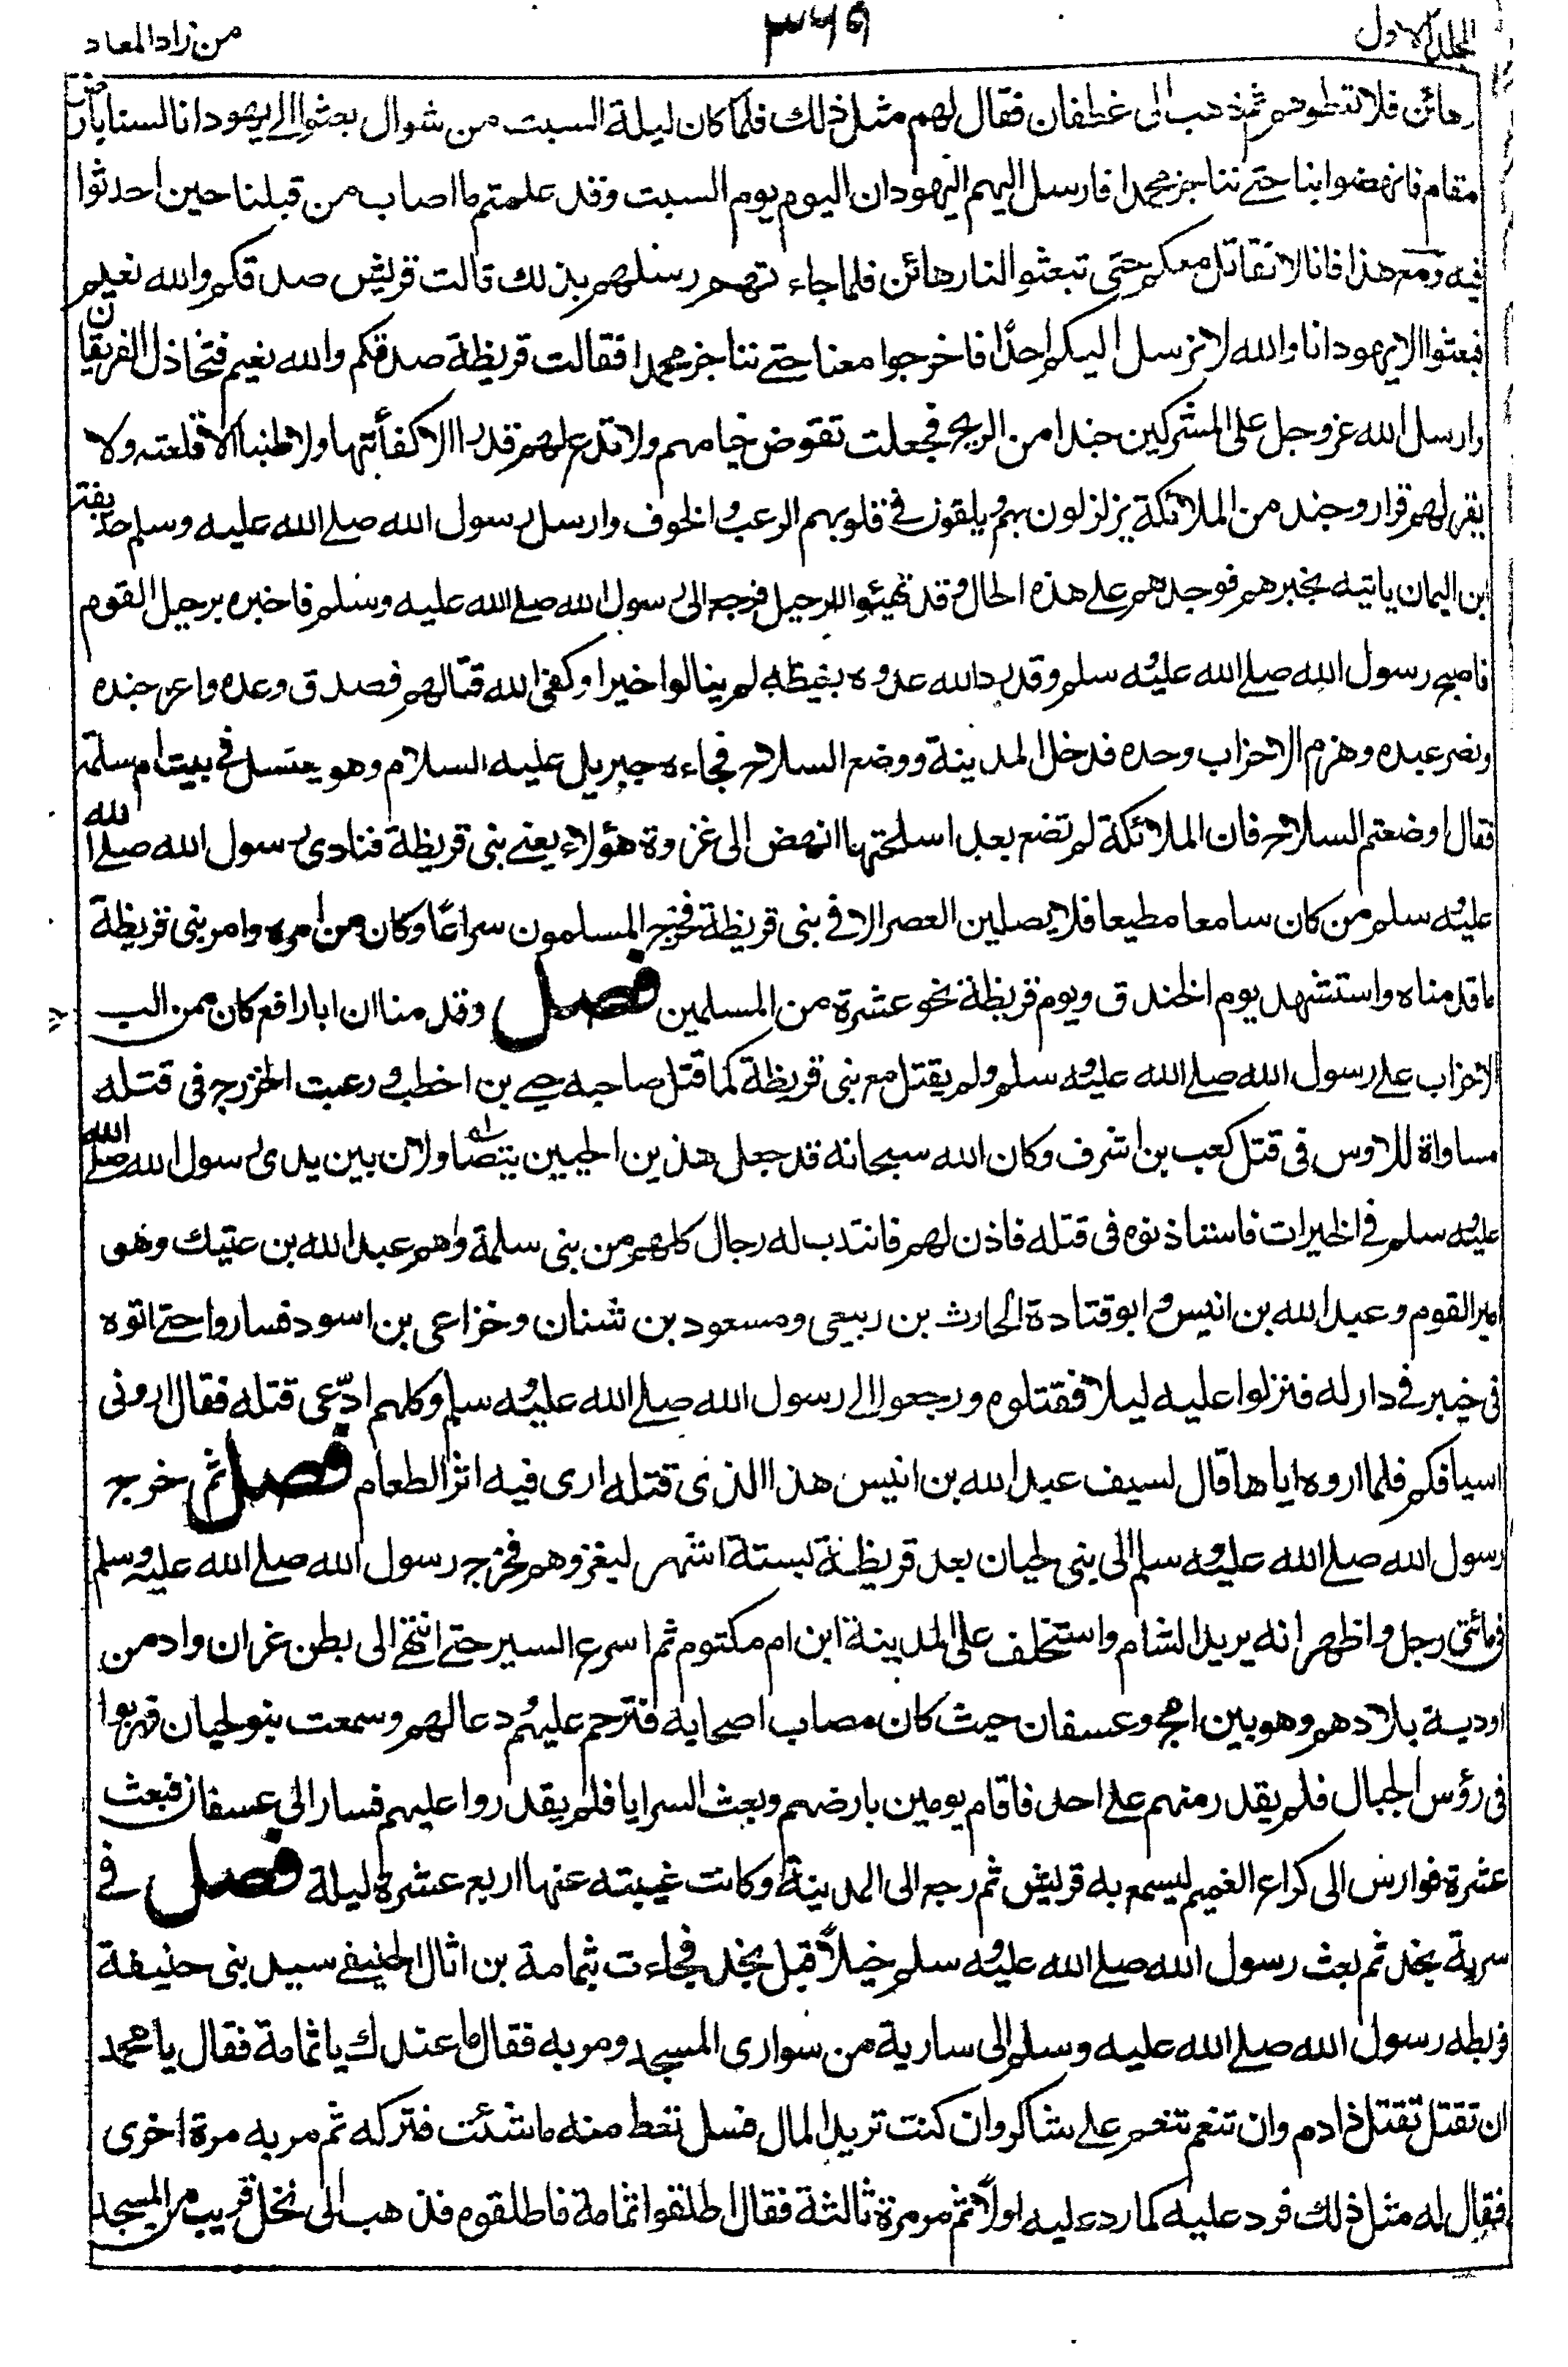 المجلد الاول
٣٦٩
من زاد المعاد
رهائن فلا تعطوهم ثم ذهب الى غطفان فقال لهم مثل ذلك فلما كان ليلة السبت من شوال بعثوا الى يهود انا لسنا بارض
مقام فانهضوا بنا حتى نناجز محمدا فارسل اليهم اليهود ان اليوم يوم السبت وقد علمتم ما اصاب من قبلنا حين احدثوا
فيه ومع هذا فانا لا نقاتل معكم حتى تبعثوا النا رهائن فلما جاءتهم رسلهم بذلك قالت قريش صدقكم والله نعيم
فبعثوا الا يهود انا والله لا نرسل اليكم احدًا فاخرجوا معنا حتى نناجز محمدا فقالت قريظة صدقكم والله نعيم فتخاذل الفريقان
وارسل الله عز وجل على المشركين جندا من الريح فجعلت تقوض خيامهم ولا تدع لهم قدرا الا كفأتها ولا طنبا الا قلعته ولا
يقر لهم قرار وجند من الملائكة يزلزلون بهم ويلقون في قلوبهم الرعب والخوف وارسل رسول الله صلى الله عليه وسلم حذيفة
بن اليمان ياتيه بخبرهم فوجدهم على هذه الحال وقد تهيئوا للرحيل فرجع الى رسول الله صلى الله عليه وسلم فاخبره برحيل القوم
فاصبح رسول الله صلى الله عليه وسلم وقد رد الله عدوه بغيظه لم ينالوا خيرا وكفى الله قتالهم فصدق وعده واعز جنده
ونصر عبده وهزم الاحزاب وحده فدخل المدينة ووضع السلاح فجاءه جبريل عليه السلام وهو يغتسل في بيت ام سلمة
فقال اوضعتم السلاح فان الملائكة لم تضع بعد اسلحتها انهض الى غزوة هؤلاء يعني بني قريظة فنادى رسول الله صلى الله
عليه وسلم من كان سامعا مطيعا فلا يصلين العصر الا في بني قريظة فخرج المسلمون سراعًا وكان من امره وامر بني قريظة
ما قدمناه واستشهد يوم الخندق ويوم قريظة نحو عشرة من المسلمين فصل وقد منا ان ابا رافع كان ممن الب
الاحزاب على رسول الله صلى الله عليه وسلم ولم يقتل مع بني قريظة كما قتل صاحبه حيي بن اخطب ورغبت الخزرج في قتله
مساواة للاوس في قتل كعب بن اشرف وكان الله سبحانه قد جعل هذين الحيين يتصاولان بين يدي رسول الله صلى الله
عليه وسلم في الخيرات فاستاذنوه في قتله فاذن لهم فانتدب له رجال كلهم من بني سلمة وهم عبد الله بن عتيك وهو
امير القوم وعبد الله بن انيس وابو قتادة الحارث بن ربيعي ومسعود بن شنان وخزاعي بن اسود فساروا حتى اتوه
في خيبر في دار له فنزلوا عليه ليلا فقتلوه ورجعوا الى رسول الله صلى الله عليه وسلم وكلهم ادّعى قتله فقال اروني
اسيافكم فلما اروه اياها قال لسيف عبد الله بن انيس هذا الذي قتله ارى فيه اثر الطعام فصل ثم خرج
رسول الله صلى الله عليه وسلم الى بني لحيان بعد قريظة بستة اشهر ليغزوهم فخرج رسول الله صلى الله عليه وسلم
في مائتي رجل واظهر انه يريد الشام واستخلف على المدينة ابن ام مكتوم ثم اسرع السير حتى انتهى الى بطن غران واد من
اودية بلادهم وهو بين امج وعسفان حيث كان مصاب اصحابه فترحم عليهم ودعا لهم وسمعت بنو لحيان فهربوا
في رؤس الجبال فلم يقدر منهم على احد فاقام يومين بارضهم وبعث السرايا فلم يقدروا عليهم فسار الى عسفان فبعث
عشرة فوارس الى كراع الغميم ليسمع به قريش ثم رجع الى المدينة وكانت غيبته عنها اربع عشرة ليلة فصل في
سرية نجد ثم بعث رسول الله صلى الله عليه وسلم خيلًا قبل نجد فجاءت بثمامة بن اثال الحنيفي سيد بني حنيفة
فربطه رسول الله صلى الله عليه وسلم الى سارية من سواري المسجد ومر به فقال ما عندك يا ثمامة فقال يا محمد
ان تقتل تقتل ذا دم وان تنعم تنعم على شاكر وان كنت تريد المال فسل تعط منه ما شئت فتركه ثم مر به مرة اخرى
فقال له مثل ذلك فرد عليه كما رد عليه اولًا ثم مر مرة ثالثة فقال اطلقوا ثمامة فاطلقوه فذهب الى نخل قريب من المسجد